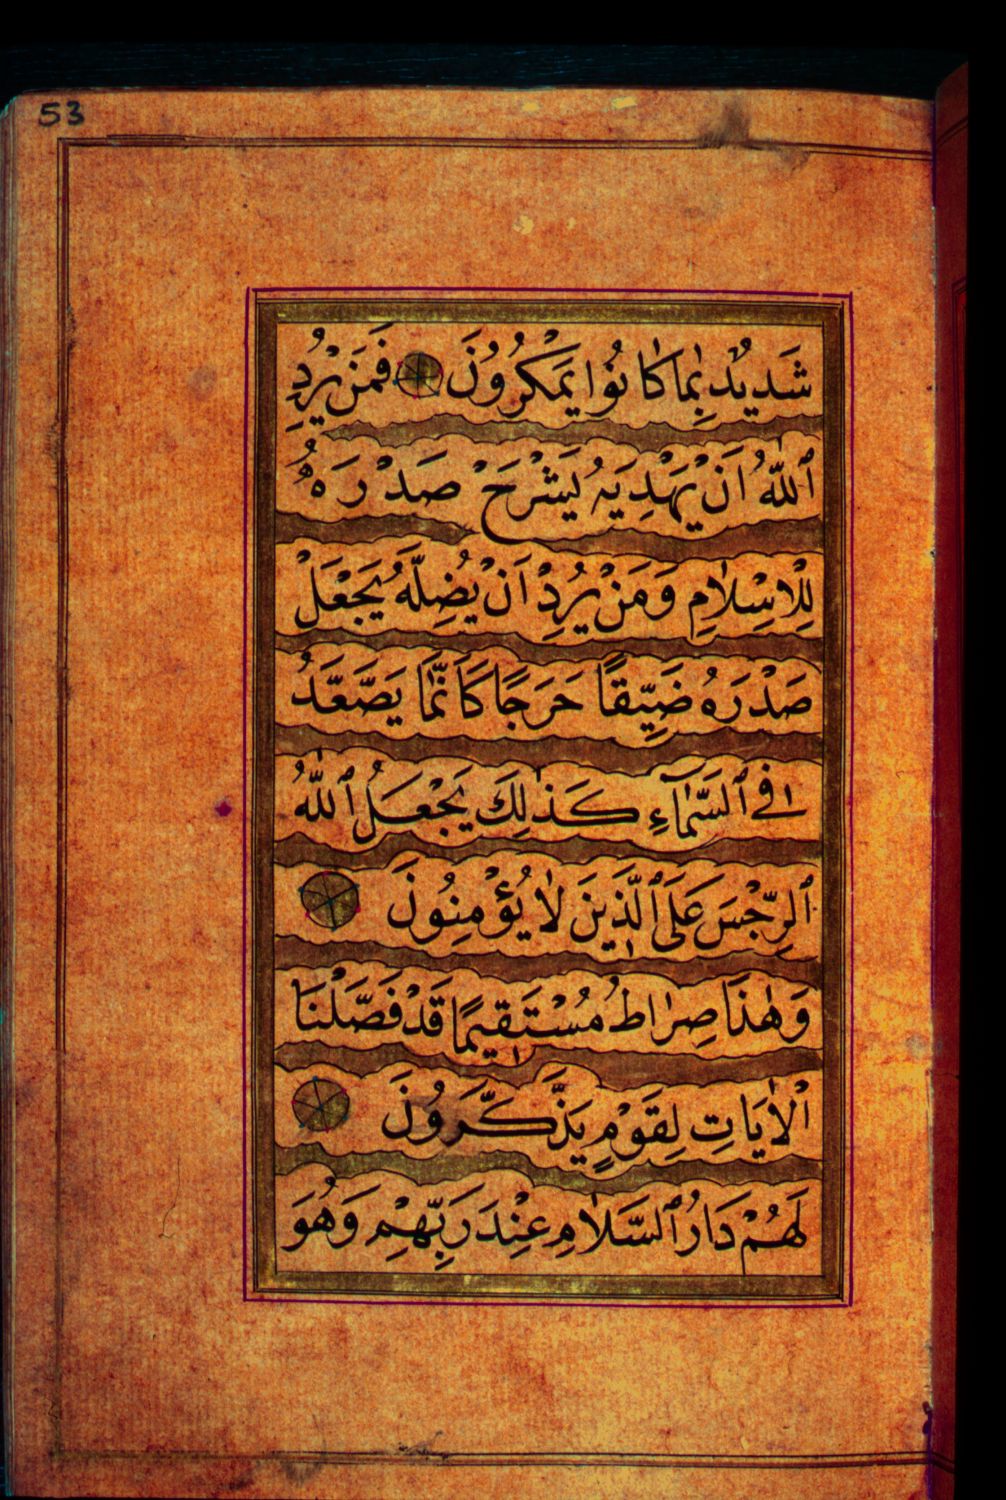 53
شَدِيدٌ بِمَا كَانُوا يَمْكُرُونَ فَمَنْ يُرِدِ
ٱللّٰهُ اَنْ يَهْدِيَهُ يَشْرَحْ صَدْرَهُ
لِلْاِسْلَامِ وَمَنْ يُرِدْ اَنْ يُضِلَّهُ يَجْعَلْ
صَدْرَهُ ضَيِّقًا حَرَجًا كَاَنَّمَا يَصَّعَّدُ
فِي ٱلسَّمَآءِ كَذٰلِكَ يَجْعَلُ ٱللّٰهُ
ٱلرِّجْسَ عَلَى ٱلَّذِينَ لَا يُؤْمِنُونَ
وَهٰذَا صِرَاطُ مُسْتَقِيمًا قَدْ فَصَّلْنَا
الْاٰيَاتِ لِقَوْمٍ يَذَّكَّرُونَ
لَهُمْ دَارُ ٱلسَّلَامِ عِنْدَ رَبِّهِمْ وَهُوَ